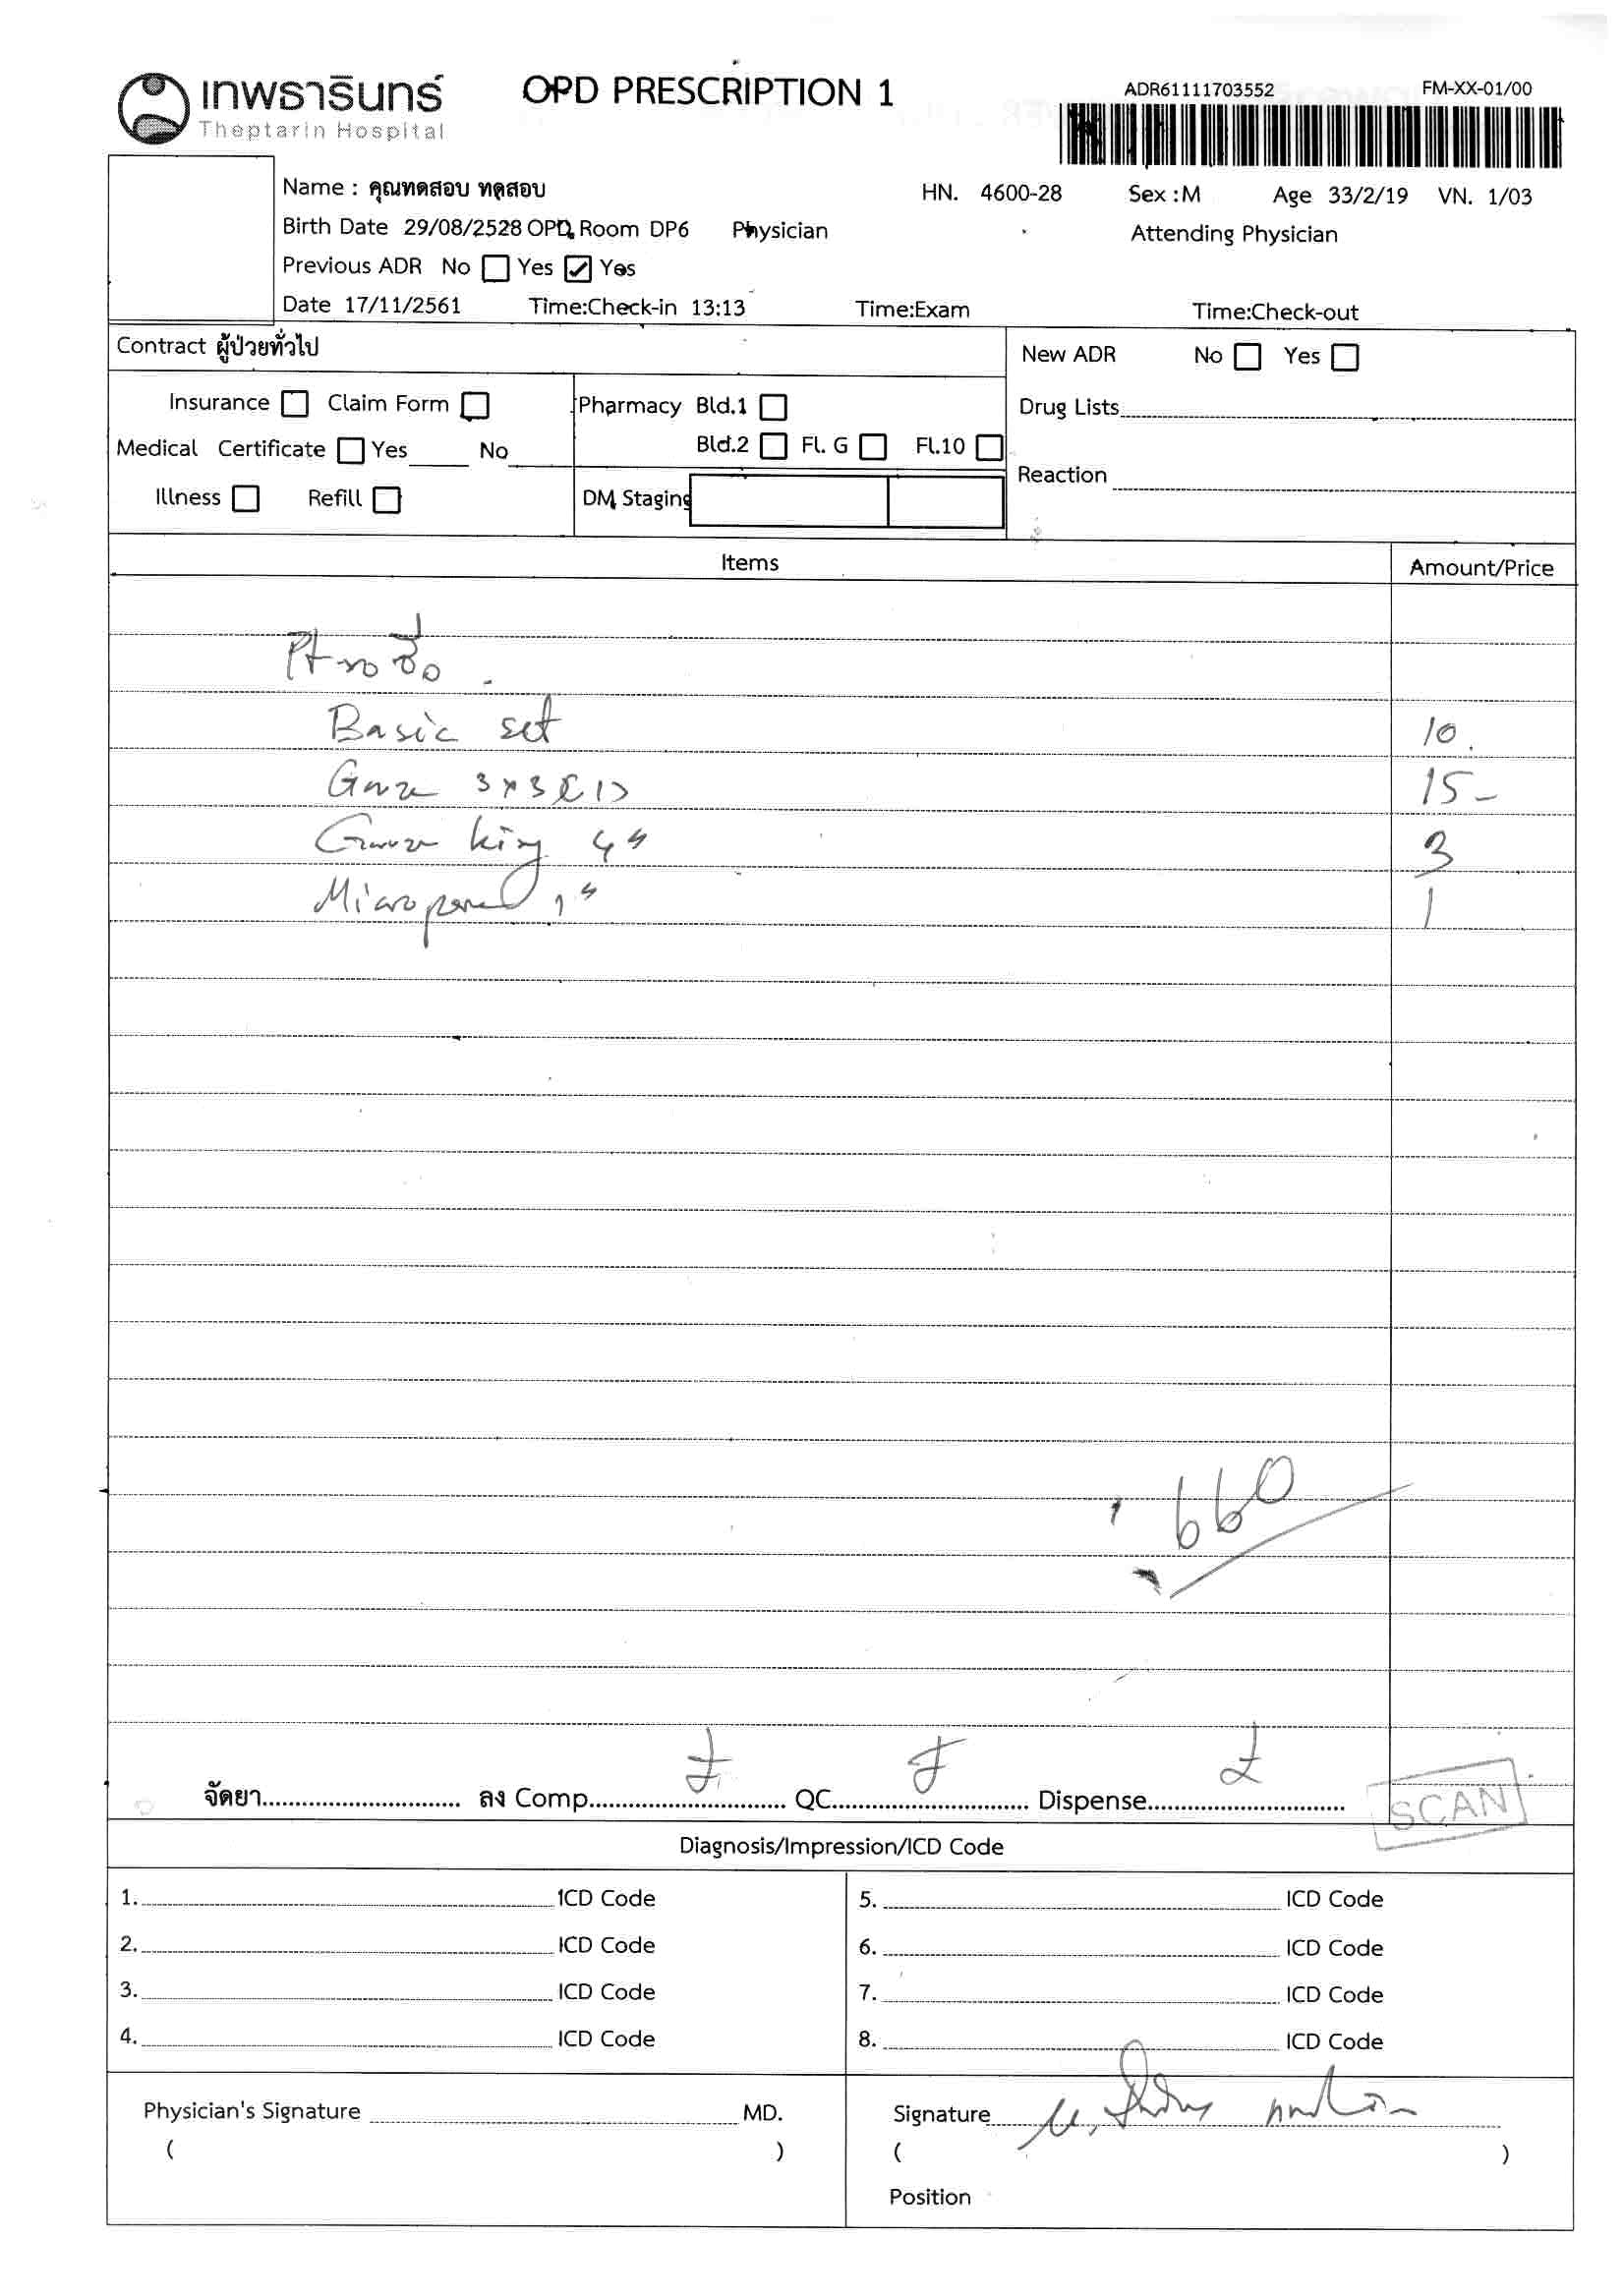 เทพธารินทร์
Theptarin Hospital
OPD PRESCRIPTION 1
ADR61111703552 FM-XX-01/00
Name : คุณทดสอบ ทดสอบ HN. 4600-28 Sex : M Age 33/2/19 VN. 1/03
Birth Date 29/08/2528 OPD, Room DP6 Physician Attending Physician
Previous ADR No Yes Yes
Date 17/11/2561 Time:Check-in 13:13 Time:Exam Time:Check-out
Contract ผู้ป่วยทั่วไป
New ADR No Yes
Insurance Claim Form Pharmacy Bld.1
Drug Lists
Medical Certificate Yes No Bld.2 Fl. G Fl.10
Reaction
Illness Refill DM Staging
Items Amount/Price
Pt ขอซื้อ
Basic set 10
Gauze 3x3 (1) 15-
Gauze king 4" 3
Micropore 1" 1
660
จัดยา ลง Comp QC Dispense
SCAN
Diagnosis/Impression/ICD Code
1. ICD Code 5. ICD Code
2. ICD Code 6. ICD Code
3. ICD Code 7. ICD Code
4. ICD Code 8. ICD Code
Physician's Signature MD. Signature
( ) ( )
Position